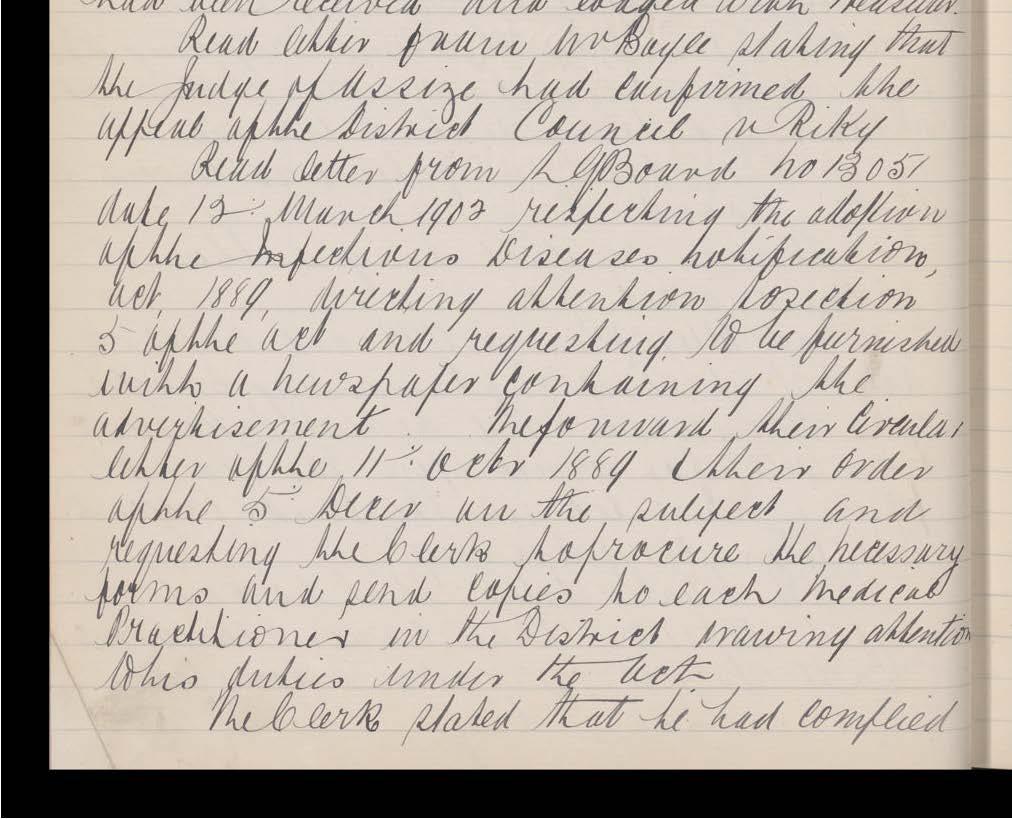 had been received and lodged with Treasurer.
Read letter from Mr Boyle stating that
the Judge of Assize had confirmed the
appeal of the District Council v Riky
Read letter from L G Board No 13051
date 12th March 1902 respecting the adoption
of the Infectious Diseases notification,
act, 1889, directing attention to section
5 of the act and requesting to be furnished
with a newspaper containing the
advertisement. The forward their Circular
letter of the 11th Octr 1889 & their order
of the 5th Decer on the subject and
requesting the Clerk to procure the necessary
forms and send copies to each Medical
Practitioner in the District drawing attention
to his duties under the act
The Clerk stated that he had complied